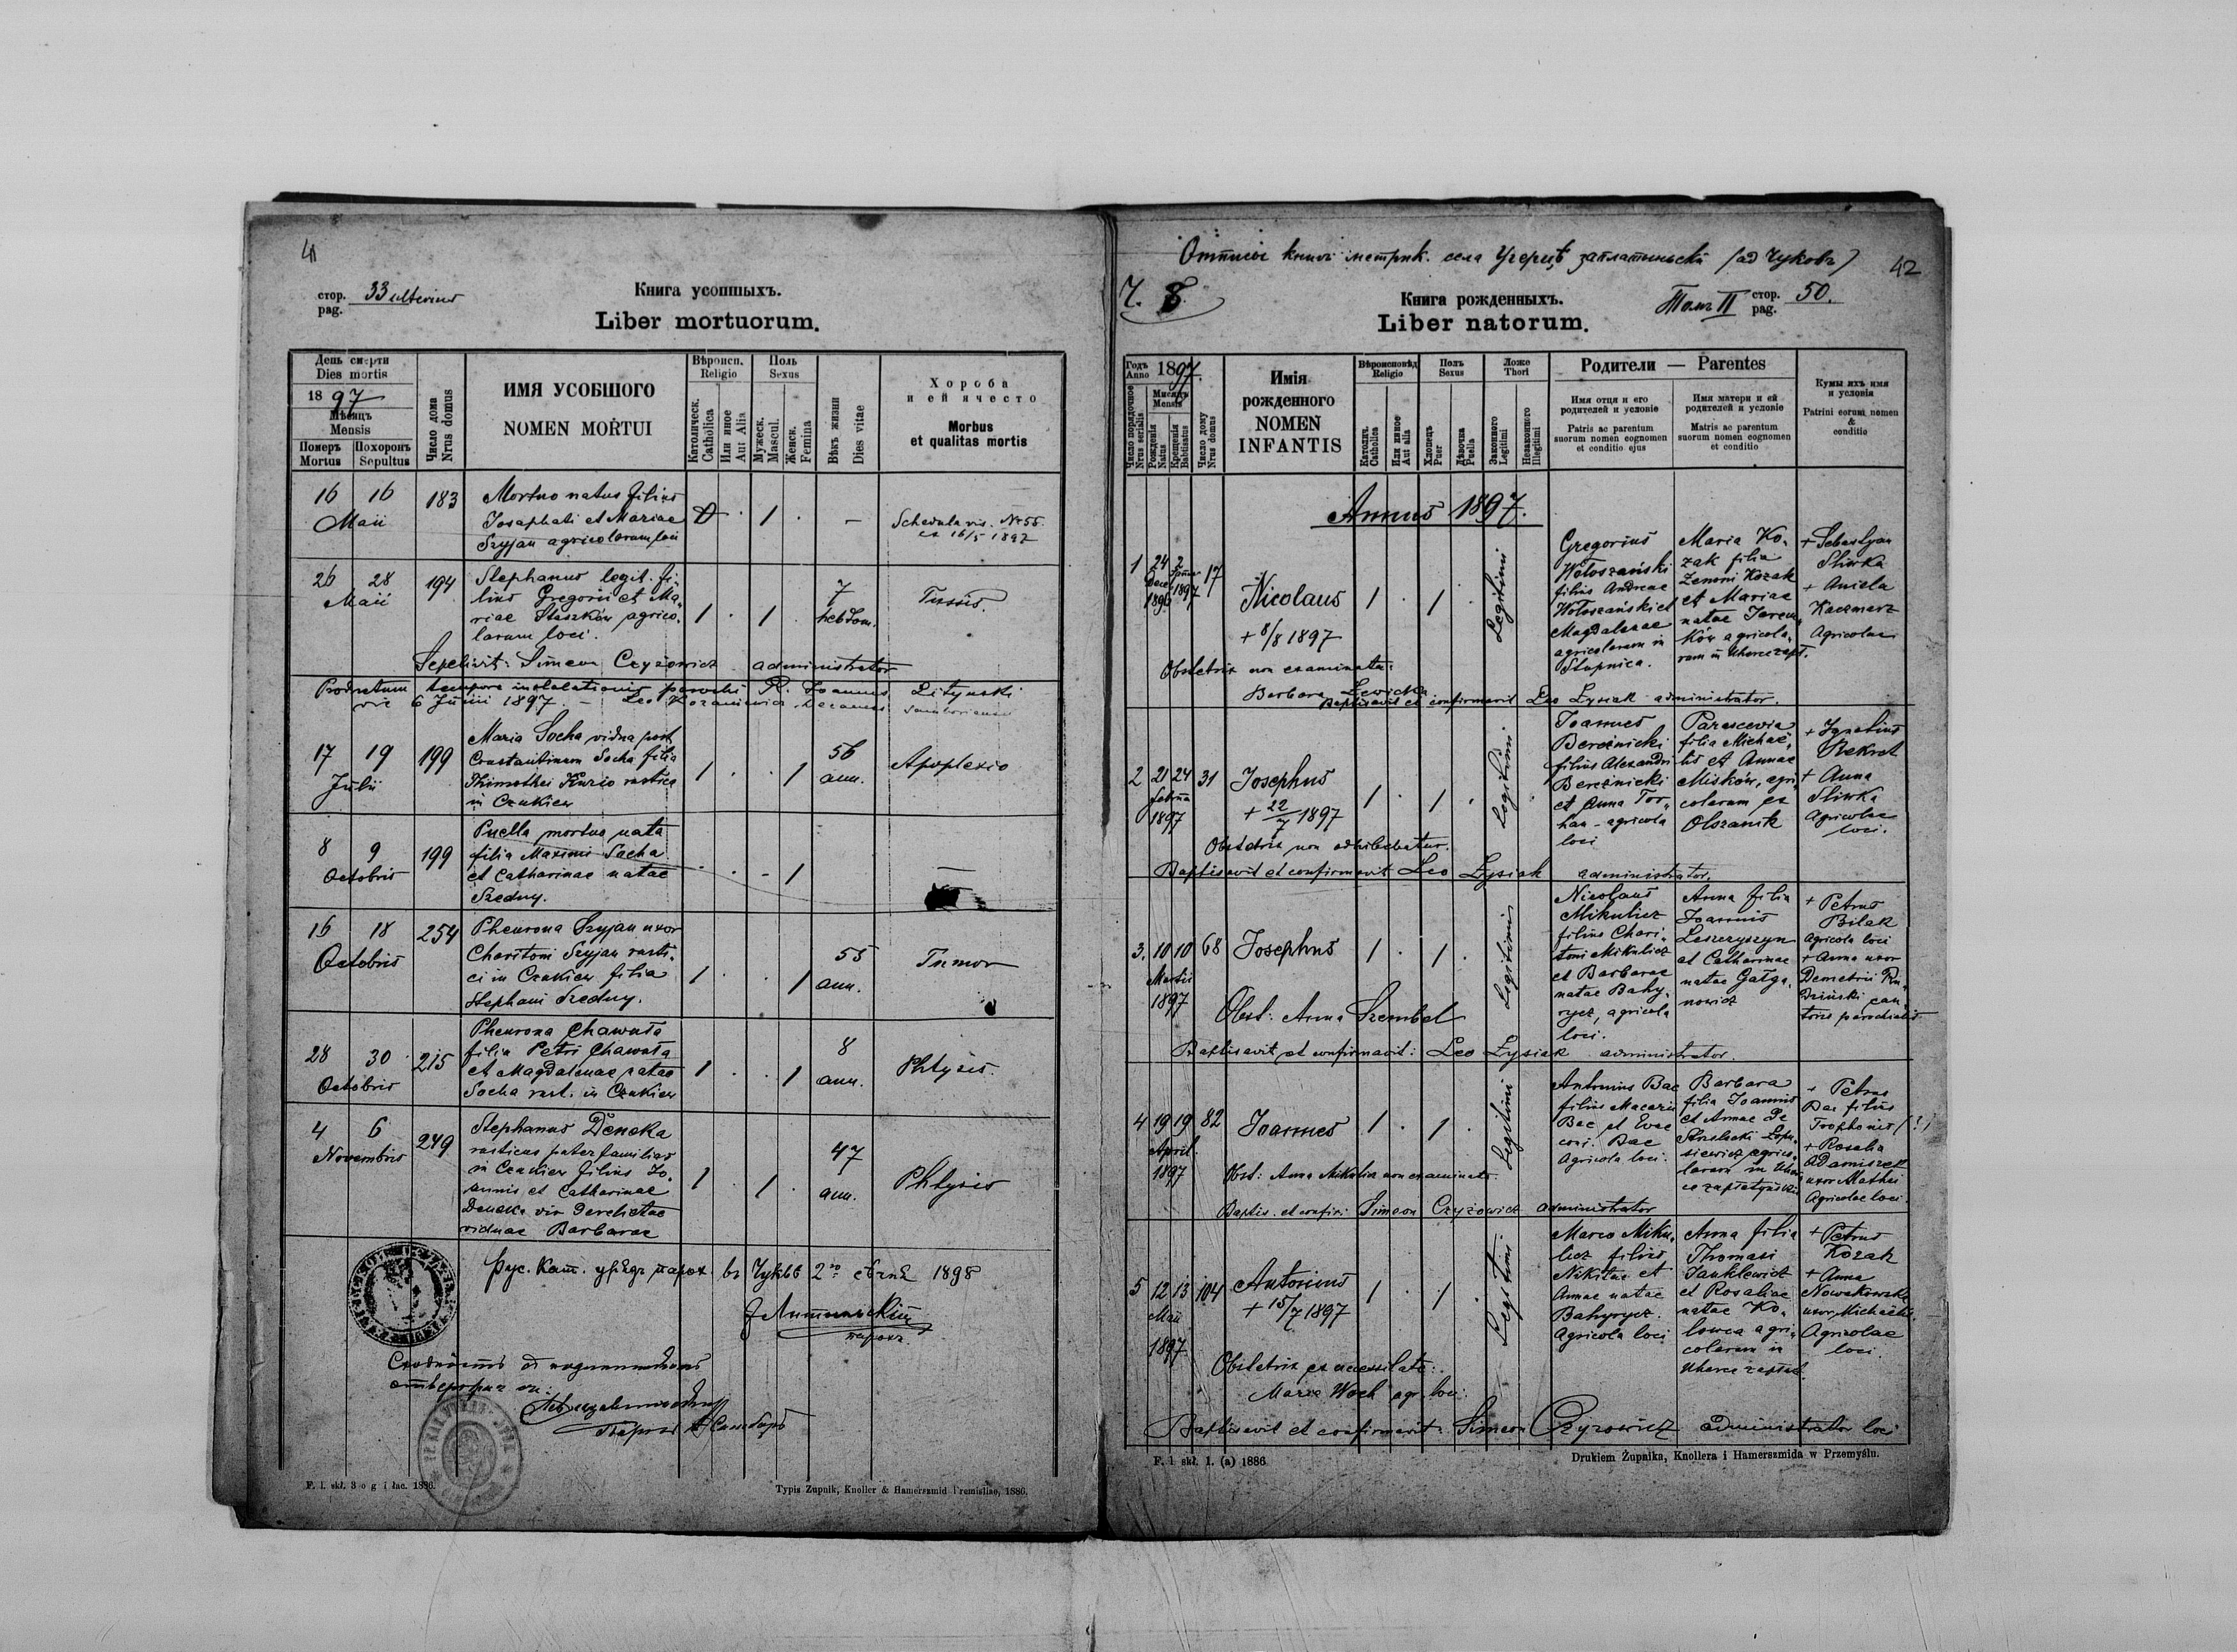 41
стор. pag. 33 ulterius
Книга усопшыхъ.
Liber mortuorum.
День смерти
Dies mortis
1897
Мѣсяць
Mensis
Померъ
Mortus
Похоронъ
Sepultus
Число дома
Nrus domus
ИМЯ УСОБШОГО
NOMEN MORTUI
Вѣроисп.
Religio
Католическ.
Catholica
Или иное
Aut Alia
Поль
Sexus
Мужеск.
Mascul.
Женск.
Femina
Вѣкъ жизни
Dies vitae
Хороба
и ей ячесто
Morbus
et qualitas mortis
16 16
Maii
183
Mortuo natus filius
Josaphati et Mariae
Szyjan agricolarum loci
1
—
Schedula vis. No 55.
ex 16/5 1897
26 28
Maii
194
Stephanus legit. fi-
lius Gregorii et Ma-
riae Staszków agrico-
larum loci.
1 . 1 .
7
hebdom.
Tussis.
Sepelivit: Simeon Czyżowicz administrator
Productum tempore installationis parochi R. Joannis Litynski
die 6 Junii 1897. – Leo Kozaniewicz Decanus Samboriensis
17 19
Julii
199
Maria Socha vidua post
Constantinum Socha filia
Thimothei Kurio rustica
in Czukiew
1 . . 1
56
ann.
Apoplexio
8 9
Octobris
199
Puella mortua nata
filia Maximi Socha
et Catharinae natae
Szedny.
. . - 1
—
16 18
Octobris
254
Pheurona Szyjan uxor
Charitoni Szyjan rusti-
ci in Czukiew filia
Stephani Szedny.
1 . . 1
55
ann.
Tumor
28 30
Octobris
215
Pheurona Chawuła
filia Petri Chawuła
et Magdalenae natae
Socha rust. in Czukiew
1 . . 1
8
ann.
Phtysis.
4 6
Novembris
249
Stephanus Deneka
rusticus paterfamilias
in Czukiew filius Jo-
annis et Catharinae
Deneka vir derelictae
viduae Barbarae
1 . 1 .
47
ann.
Phtysis
Рус. Кат. урядъ парох. въ Чуквѣ 2го сѣчня 1898
Литинскій
парохъ
F. l. skł. 3 o g i łac. 1886.
Typis Zupnik, Knoller & Hamerszmid Premisliae, 1886.
Отписы книги метрик. села Угерцѣ заплатиньскіи (ад Чуковъ)
42
Ч. 8.
Книга рожденныхъ.
Liber natorum.
Томъ II стор. pag. 50.
Годъ
Anno 1897.
Число порядочное
Nrus serialis
Мѣсяць
Mensis
Рожденія
Natus
Крещенія
Babtisatus
Число дому
Nrus domus
Имія
рожденного
NOMEN
INFANTIS
Вѣроисповѣд
Religio
Католич.
Catholica
Или иное
Aut alia
Полъ
Sexus
Хлопецъ
Puer
Дѣвочка
Puella
Ложе
Thori
Законного
Legitimi
Незаконного
Illegitimi
Родители — Parentes
Имя отця и его
родителей и условіе
Patris ac parentum
suorum nomen cognomen
et conditio ejus
Имя матери и ей
родителей и условіе
Matris ac parentum
suorum nomen cognomen
et conditio
Кумы ихъ имя
и условія
Patrini eorum nomen
&
conditio
Annus 1897.
1
24 2
Dece
1896 1897
17
Nicolaus
+ 8/8 1897
1 . 1 .
Legitimi
Gregorius
Wołoszański
filius Andreae
Wołoszański et
Magdalenae
agricolarum in
Stupnica.
Maria Ko-
zak filia
Zenoni Kozak
et Mariae
natae Jarem-
ków agricola-
rum in Uherce zapł.
+ Sebastyan
Śliwka
+ Aniela
Kaczmarz
Agricolae
Obstetrix non examinata:
Barbara Lewicka
Baptisavit et confirmavit Leo Łysiak administrator.
2
21 24
Februa
1897
31
Josephus
+ 22/7 1897
1 . 1 .
Legitimi
Joannes
Bereźnicki
filius Alexandri
Bereźnicki
et Anna Tor-
han - agricola
loci
Parascevia
filia Michaë-
lis et Annae
Misków, agri-
colarum ex
Olszanik
+ Ignatius
Rekrot
+ Anna
Śliwka
Agricolae
loci.
Obstetrix non adhibebatur.
Baptisavit et confirmavit Leo Łysiak administrator.
3.
10 10
Martii
1897
68
Josephus
1 . 1 .
Legitimis
Nicolaus
Mikulicz
filius Chari-
toni Mikulicz
et Barbarae
natae Bahy-
rycz, agricola
loci.
Anna filia
Joannis
Leszczyszyn
et Catharinae
natae Gałga-
nowicz
+ Petrus
Bilak
agricola loci
+ Anna uxor
Demetrii Ru-
dziński can-
toris parochialis
Obst: Anna Szembel
Baptisavit et confirmavit: Leo Łysiak administrator.
4
19 19
April.
1897
82
Joannes
1 . 1 .
Legitimi
Antonius Bac
filius Macarii
Bac et Evae
coni. Bac
Agricola loci.
Barbara
filia Joannis
et Annae De
Strzelecki Łopu-
siewicz agrico-
larum in Uher-
ce zapłatyńskie
+ Petrus
Bac filius
Trophonis (?)
+ Rosalia
Adamiszcz
uxor Mathei
Agricolae loci.
Obst: Anna Mikulicz non examinata.
Baptis. et confir: Simeon Czyżowicz administrator
5
12 13
Maii
1897
104
Antonius
+ 15/7 1897
1 . 1 .
Legitimi
Marco Miku-
licz filius
Nikitae et
Annae natae
Bahyrycz.
Agricola loci
Anna filia
Thomasi
Janklewicz
et Rosaliae
natae Ko-
lowca agri-
colarum in
Uherce zapłat.
+ Petrus
Kozak
+ Anna
Nowakowska
uxor Michaëlis.
Agricolae
loci.
Obstetrix ex necessitate:
Maria Woch agr. loci.
Baptisavit et confirmavit: Simeon Czyżowicz administrator loci
F. l skł. 1. (a) 1886
Drukiem Żupnika, Knollera i Hamerszmida w Przemyślu.